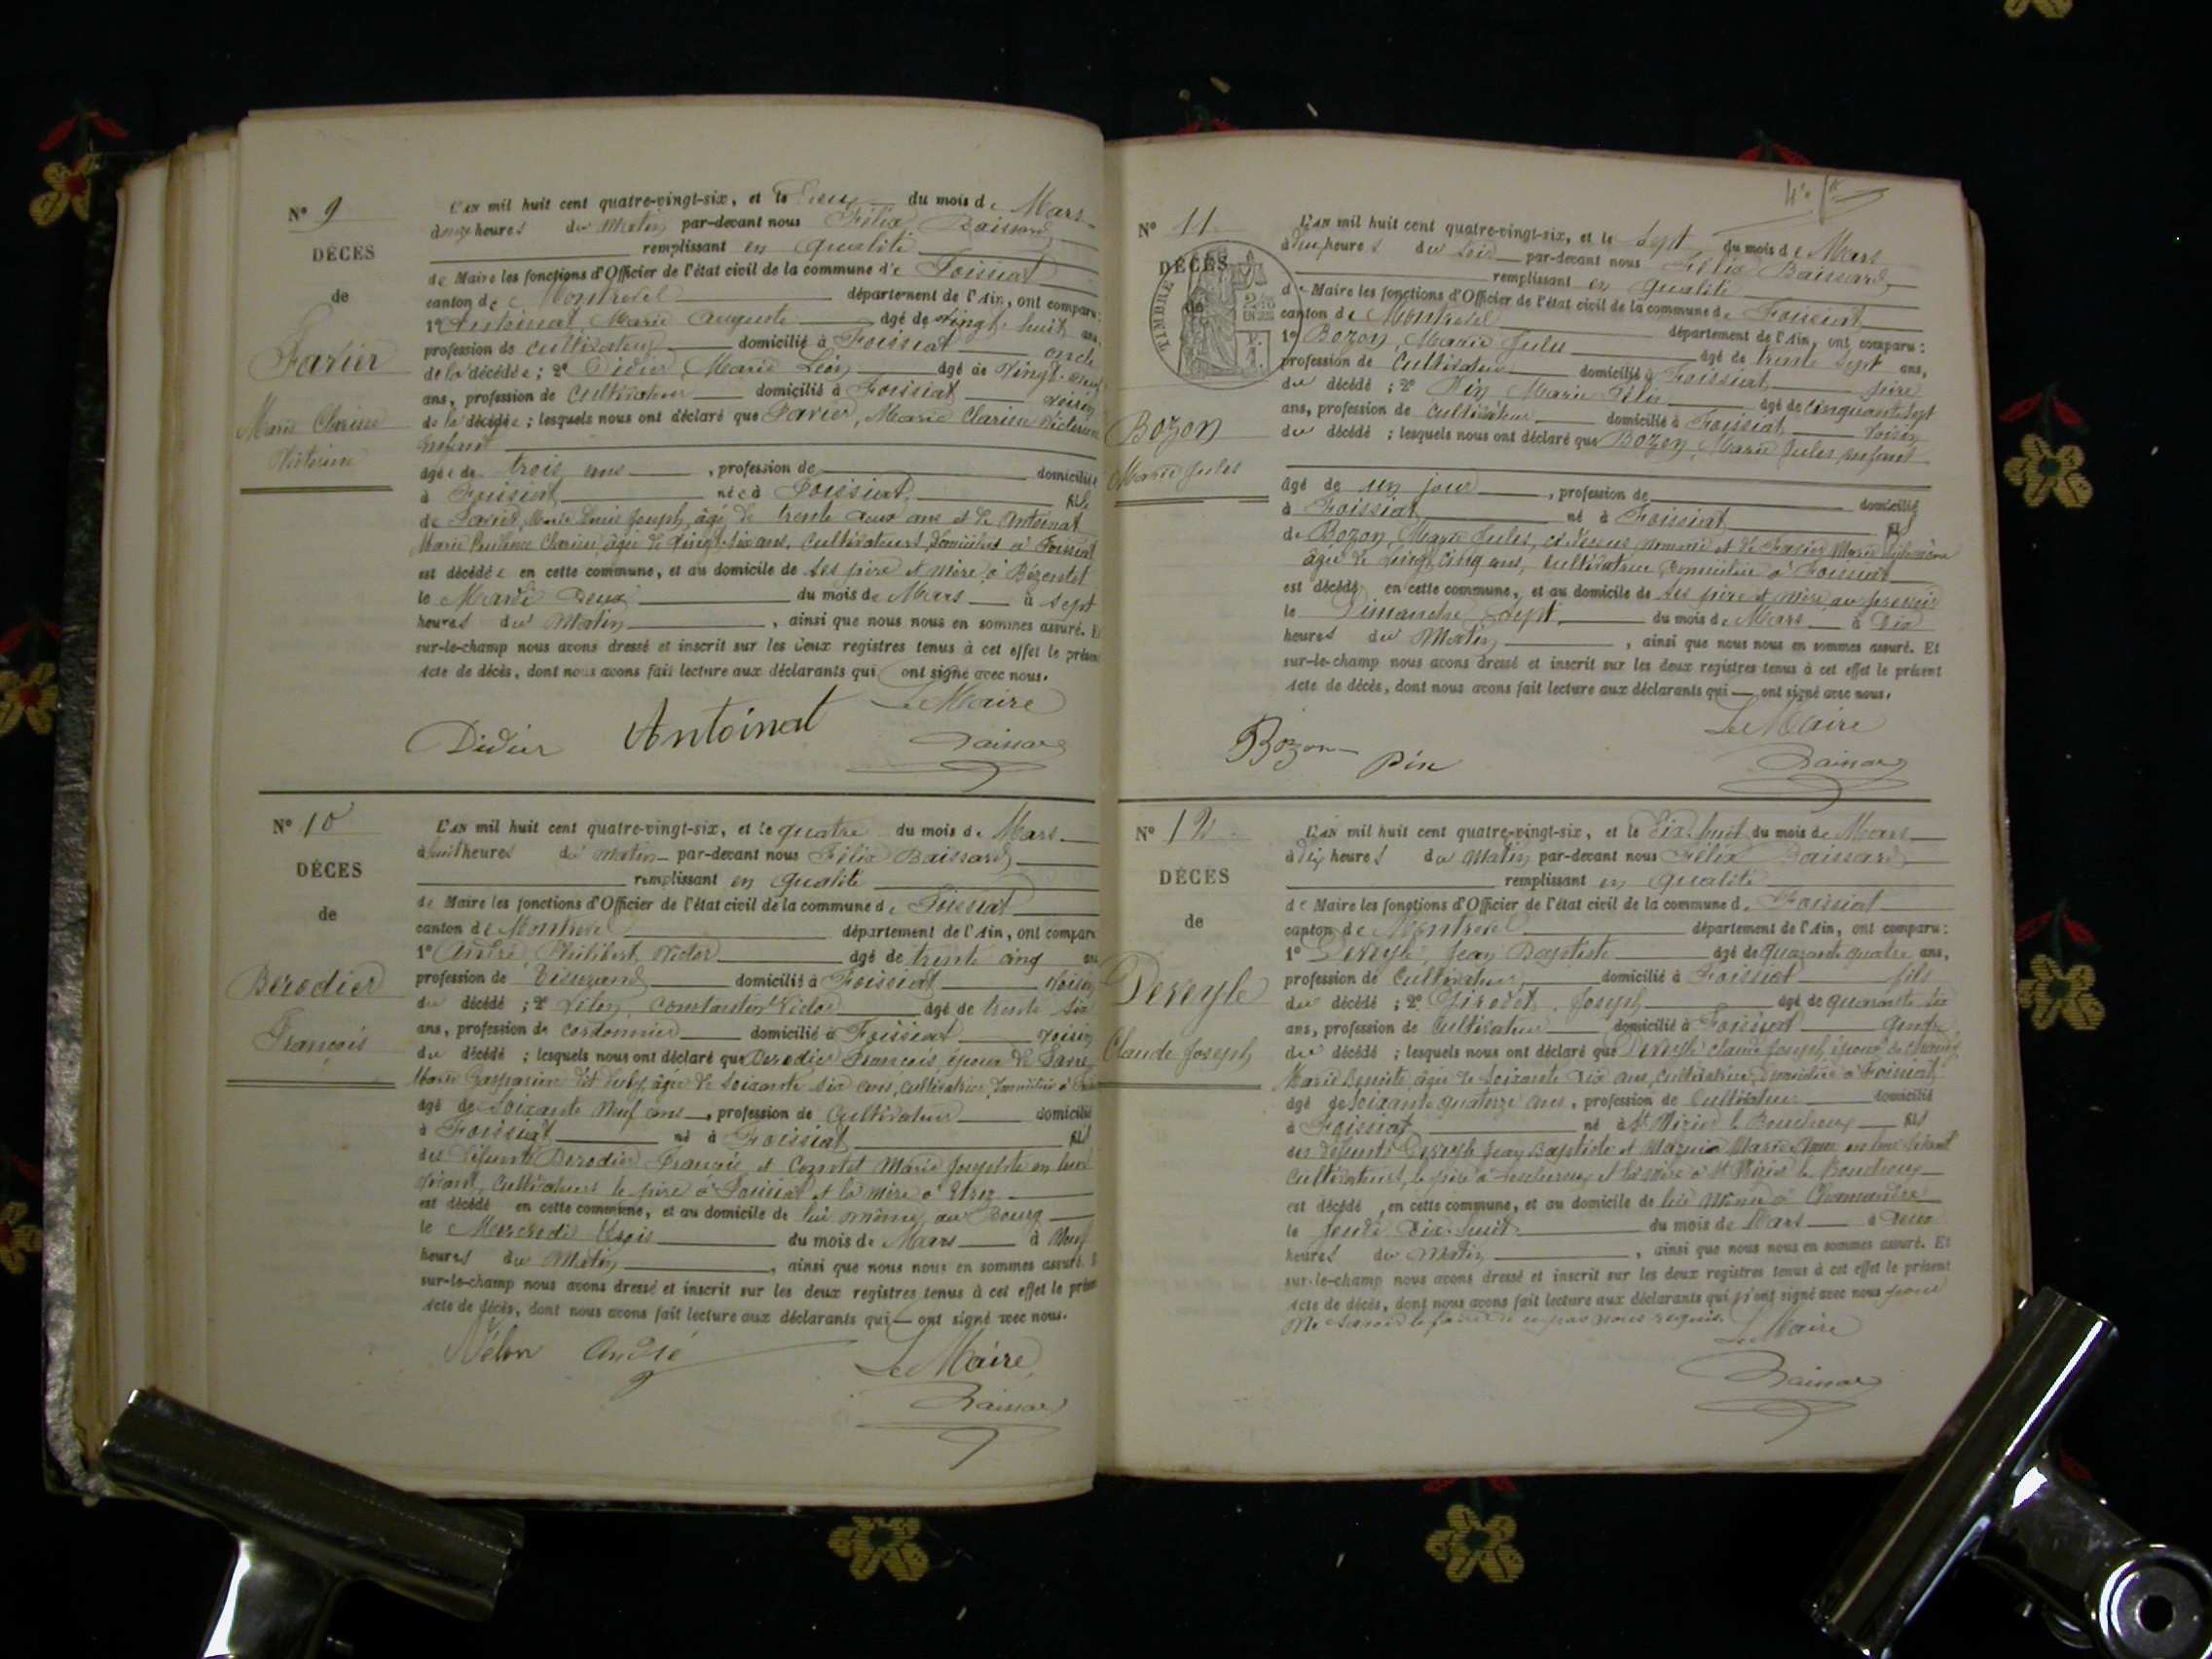 N° 9
DÉCÈS
de
Favier
Marie Clarisse
Victorine
L'AN mil huit cent quatre-vingt-six, et le Deux du mois de Mars
à onze heures du Matin par-devant nous Félix Baissard
remplissant en qualité
de Maire les fonctions d'Officier de l'état civil de la commune de Foissiat
canton de Montrevel département de l'Ain, ont comparu:
1° Antoinat, Marie Auguste âgé de vingt huit ans,
profession de cultivateur domicilié à Foissiat oncle
de la décédée; 2° Didier, Marie Léon âgé de vingt-neuf
ans, profession de Cultivateur domicilié à Foissiat voisin
de la décédée; lesquels nous ont déclaré que Favier, Marie Clarisse Victorine
enfant
âgée de trois ans, profession de domiciliée
à Foissiat née à Foissiat fille
de Favier, Marie Louis Joseph, âgé de trente deux ans et de Antoinat
Marie Clarisse, âgée de vingt-six ans, Cultivateurs, domiciliés à Foissiat
est décédée en cette commune, et au domicile de ses père et mère à Bézentet
le Mardi Deux du mois de Mars à sept
heures du Matin, ainsi que nous nous en sommes assuré. Et
sur-le-champ nous avons dressé et inscrit sur les deux registres tenus à cet effet le présent
acte de décès, dont nous avons fait lecture aux déclarants qui ont signé avec nous.
Le Maire
Didier Antoinat Baissard
N° 10
DÉCÈS
de
Berodier
François
L'AN mil huit cent quatre-vingt-six, et le quatre du mois de Mars
à huit heures du matin par-devant nous Félix Baissard
remplissant en qualité
de Maire les fonctions d'Officier de l'état civil de la commune de Foissiat
canton de Montrevel département de l'Ain, ont comparu
1° André Philibert Victor âgé de trente cinq ans
profession de Tisserand domicilié à Foissiat voisin
du décédé; 2° Vélon, Constantin Victor âgé de trente six
ans, profession de cordonnier domicilié à Foissiat voisin
du décédé; lesquels nous ont déclaré que Berodier François, époux de
Marie âgée de soixante six ans, cultivatrice, domiciliée à
âgé de soixante neuf ans, profession de Cultivateur domicilié
à Foissiat né à Foissiat fils
des défunts Berodier François et Cognetet Marie Josephte en leur
vivant, Cultivateurs le père à Foissiat et la mère à Etrez
est décédé en cette commune, et au domicile de lui même, au Bourg
le Mercredi trois du mois de Mars à Neuf
heures du Matin, ainsi que nous nous en sommes assuré. Et
sur-le-champ nous avons dressé et inscrit sur les deux registres tenus à cet effet le présent
acte de décès, dont nous avons fait lecture aux déclarants qui ont signé avec nous.
Vélon André Le Maire
Baissard
N° 11
DÉCÈS
de
TIMBRE
Bozon
Marie Jules
L'AN mil huit cent quatre-vingt-six, et le sept du mois de Mars
à heures du soir par-devant nous Félix Baissard
remplissant en qualité
de Maire les fonctions d'Officier de l'état civil de la commune de Foissiat
canton de Montrevel département de l'Ain, ont comparu:
1° Bozon, Marie Jules âgé de trente sept ans,
profession de Cultivateur domicilié à Foissiat père
du décédé; 2° Pin Marie Félix âgé de cinquante sept
ans, profession de cultivateur domicilié à Foissiat voisin
du décédé; lesquels nous ont déclaré que Bozon, Marie Jules, enfant
âgé de un jour, profession de domicilié
à Foissiat né à Foissiat fils
de Bozon, Marie Jules, ci-dessus nommé et de Favier Marie
âgée de vingt cinq ans, cultivatrice, domiciliée à Foissiat
est décédé en cette commune, et au domicile de ses père et mère au
le Dimanche sept du mois de Mars à Dix
heures du Matin, ainsi que nous nous en sommes assuré. Et
sur-le-champ nous avons dressé et inscrit sur les deux registres tenus à cet effet le présent
acte de décès, dont nous avons fait lecture aux déclarants qui ont signé avec nous.
Le Maire
Bozon Pin Baissard
N° 12
DÉCÈS
de
Dereyle
Claude Joseph
L'AN mil huit cent quatre-vingt-six, et le Dix-huit du mois de Mars
à dix heures du Matin par-devant nous Félix Baissard
remplissant en qualité
de Maire les fonctions d'Officier de l'état civil de la commune de Foissiat
canton de Montrevel département de l'Ain, ont comparu:
1° Dereyle, Jean Baptiste âgé de quarante quatre ans,
profession de Cultivateur, domicilié à Foissiat fils
du décédé; 2° Girodet, Joseph âgé de quarante six
ans, profession de Cultivateur domicilié à Foissiat gendre
du décédé; lesquels nous ont déclaré que Dereyle Claude Joseph, époux de
Marie Benoite, âgée de soixante dix ans, cultivatrice, domiciliée à Foissiat
âgé de soixante quatorze ans, profession de Cultivateur domicilié
à Foissiat né à St Nizier le Bouchoux fils
des défunts Dereyle Jean Baptiste et Marie Anne en leur vivant
Cultivateurs, le père à et la mère à St Nizier le Bouchoux
est décédé, en cette commune, et au domicile de lui même à Chamandre
le Jeudi Dix-huit du mois de Mars à Deux
heures du Matin, ainsi que nous nous en sommes assuré. Et
sur-le-champ nous avons dressé et inscrit sur les deux registres tenus à cet effet le présent
acte de décès, dont nous avons fait lecture aux déclarants qui n'ont signé avec nous pour
ne savoir le faire de ce par nous requis
Le Maire
Baissard